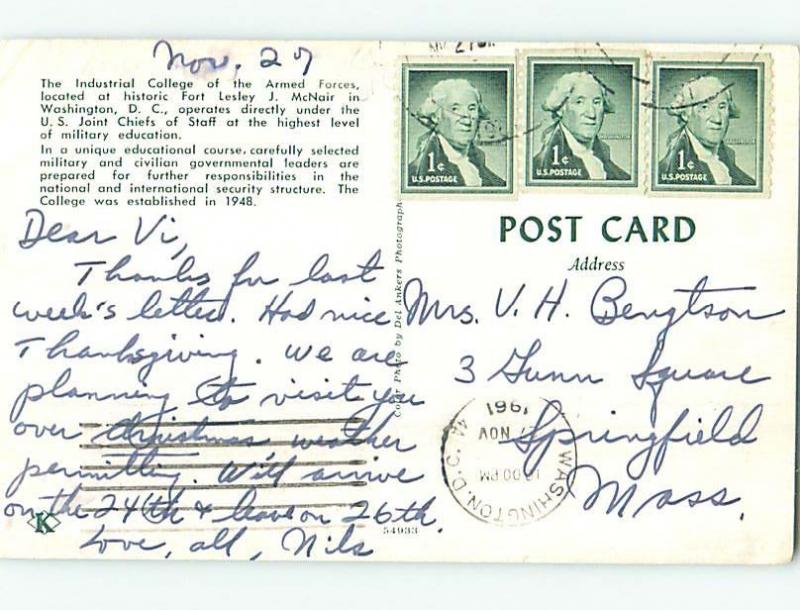 Nov. 27
The Industrial College of the Armed Forces,
located at historic Fort Lesley J. McNair in
Washington, D. C., operates directly under the
U. S. Joint Chiefs of Staff at the highest level
of military education.
In a unique educational course, carefully selected
military and civilian governmental leaders are
prepared for further responsibilities in the
national and international security structure. The
College was established in 1948.
Dear Vi,
Thanks for last
week's letter. Had nice
Thanksgiving. We are
planning to visit you
over Christmas weather
permitting. Will arrive
on the 24th & leave on 26th.
Love, all, Nils
K
54933
Color Photo by Del Ankers Photographs
1¢
U.S. POSTAGE
1¢
U.S. POSTAGE
1¢
U.S. POSTAGE
POST CARD
Address
Mrs. V. H. Bengtson
3 Gunn Square
Springfield
Mass.
WASHINGTON, D.C.
NOV
1961